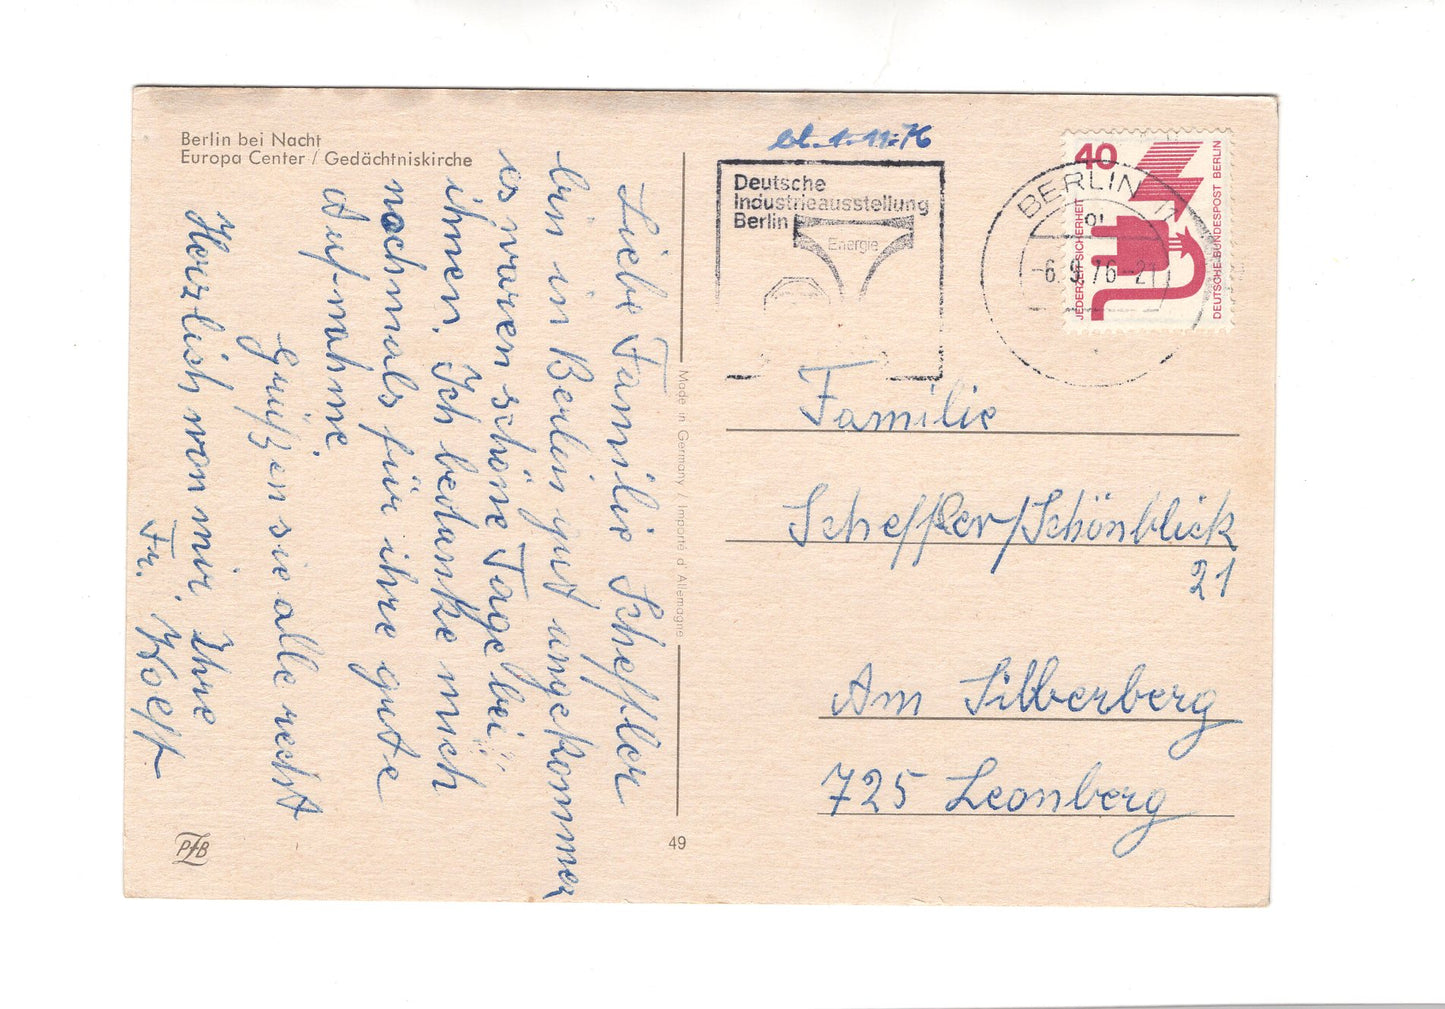 Berlin bei Nacht
Europa Center / Gedächtniskirche
Liebe Familie Scheffler
bin in Berlin gut angekommen
es waren schöne Tage bei
ihnen. Ich bedanke mich
nochmals für ihre gute
Aufnahme.
Grüßen sie alle recht
Herzlich von mir. Ihre
Fr.
PZB
49
Made in Germany / Importé d'Allemagne
1.11.76
Deutsche
Industrieausstellung
Berlin
Energie
BERLIN 11
-6.9.76-21
40
JEDERZEIT SICHERHEIT
DEUTSCHE BUNDESPOST BERLIN
Familie
Scheffler/Schönblick
21
Am Silberberg
725 Leonberg